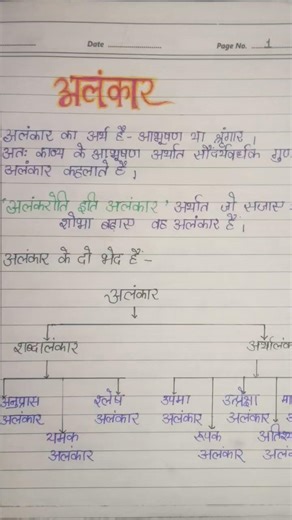 Date
Page No. 1
अलंकार
अलंकार का अर्थ है - आभूषण या श्रृंगार ।
अतः काव्य के आभूषण अर्थात सौंदर्यवर्धक गुण
अलंकार कहलाते है ।
'अलंकरोति इति अलंकार' अर्थात जो सजाए -
शोभा बढ़ाए वह अलंकार है ।
अलंकार के दो भेद हैं -
अलंकार
शब्दालंकार
अनुप्रास श्लेष उपमा उत्प्रेक्षा
अलंकार अलंकार अलंकार अलंकार
यमक रूपक
अलंकार अलंकार